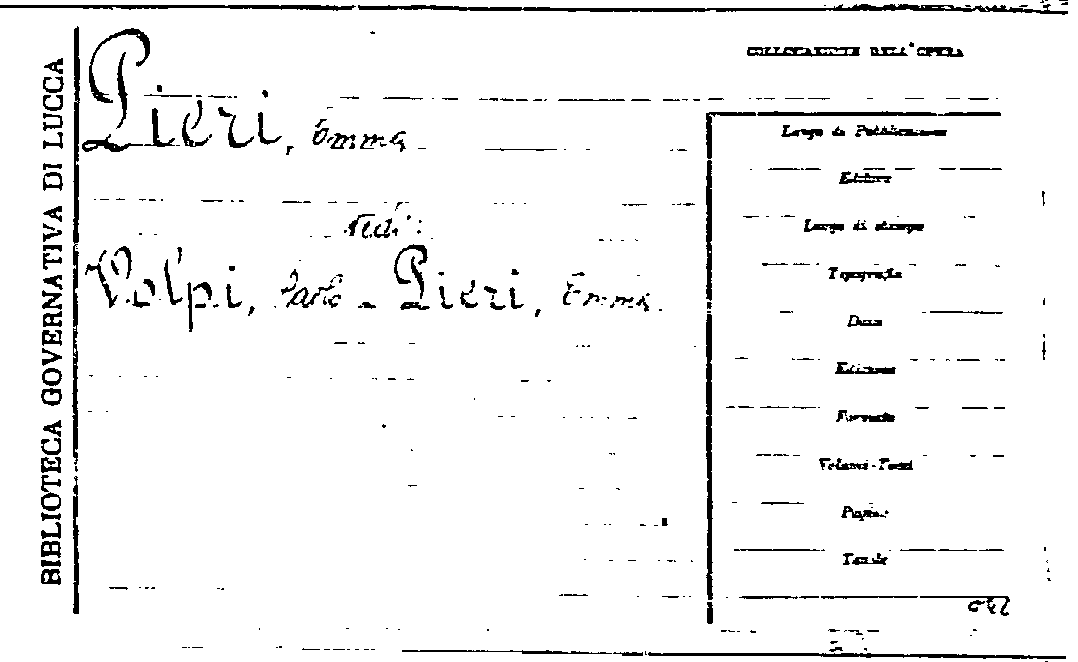 BIBLIOTECA GOVERNATIVA DI LUCCA
COLLOCAZIONE DELL'OPERA
Pieri, Emma
Vedi:
Volpi, Paolo - Pieri, Emma.
Luogo di Pubblicazione
Editore
Luogo di stampa
Tipografia
Data
Edizione
Formato
Volumi-Tomi
Pagine
Tavole